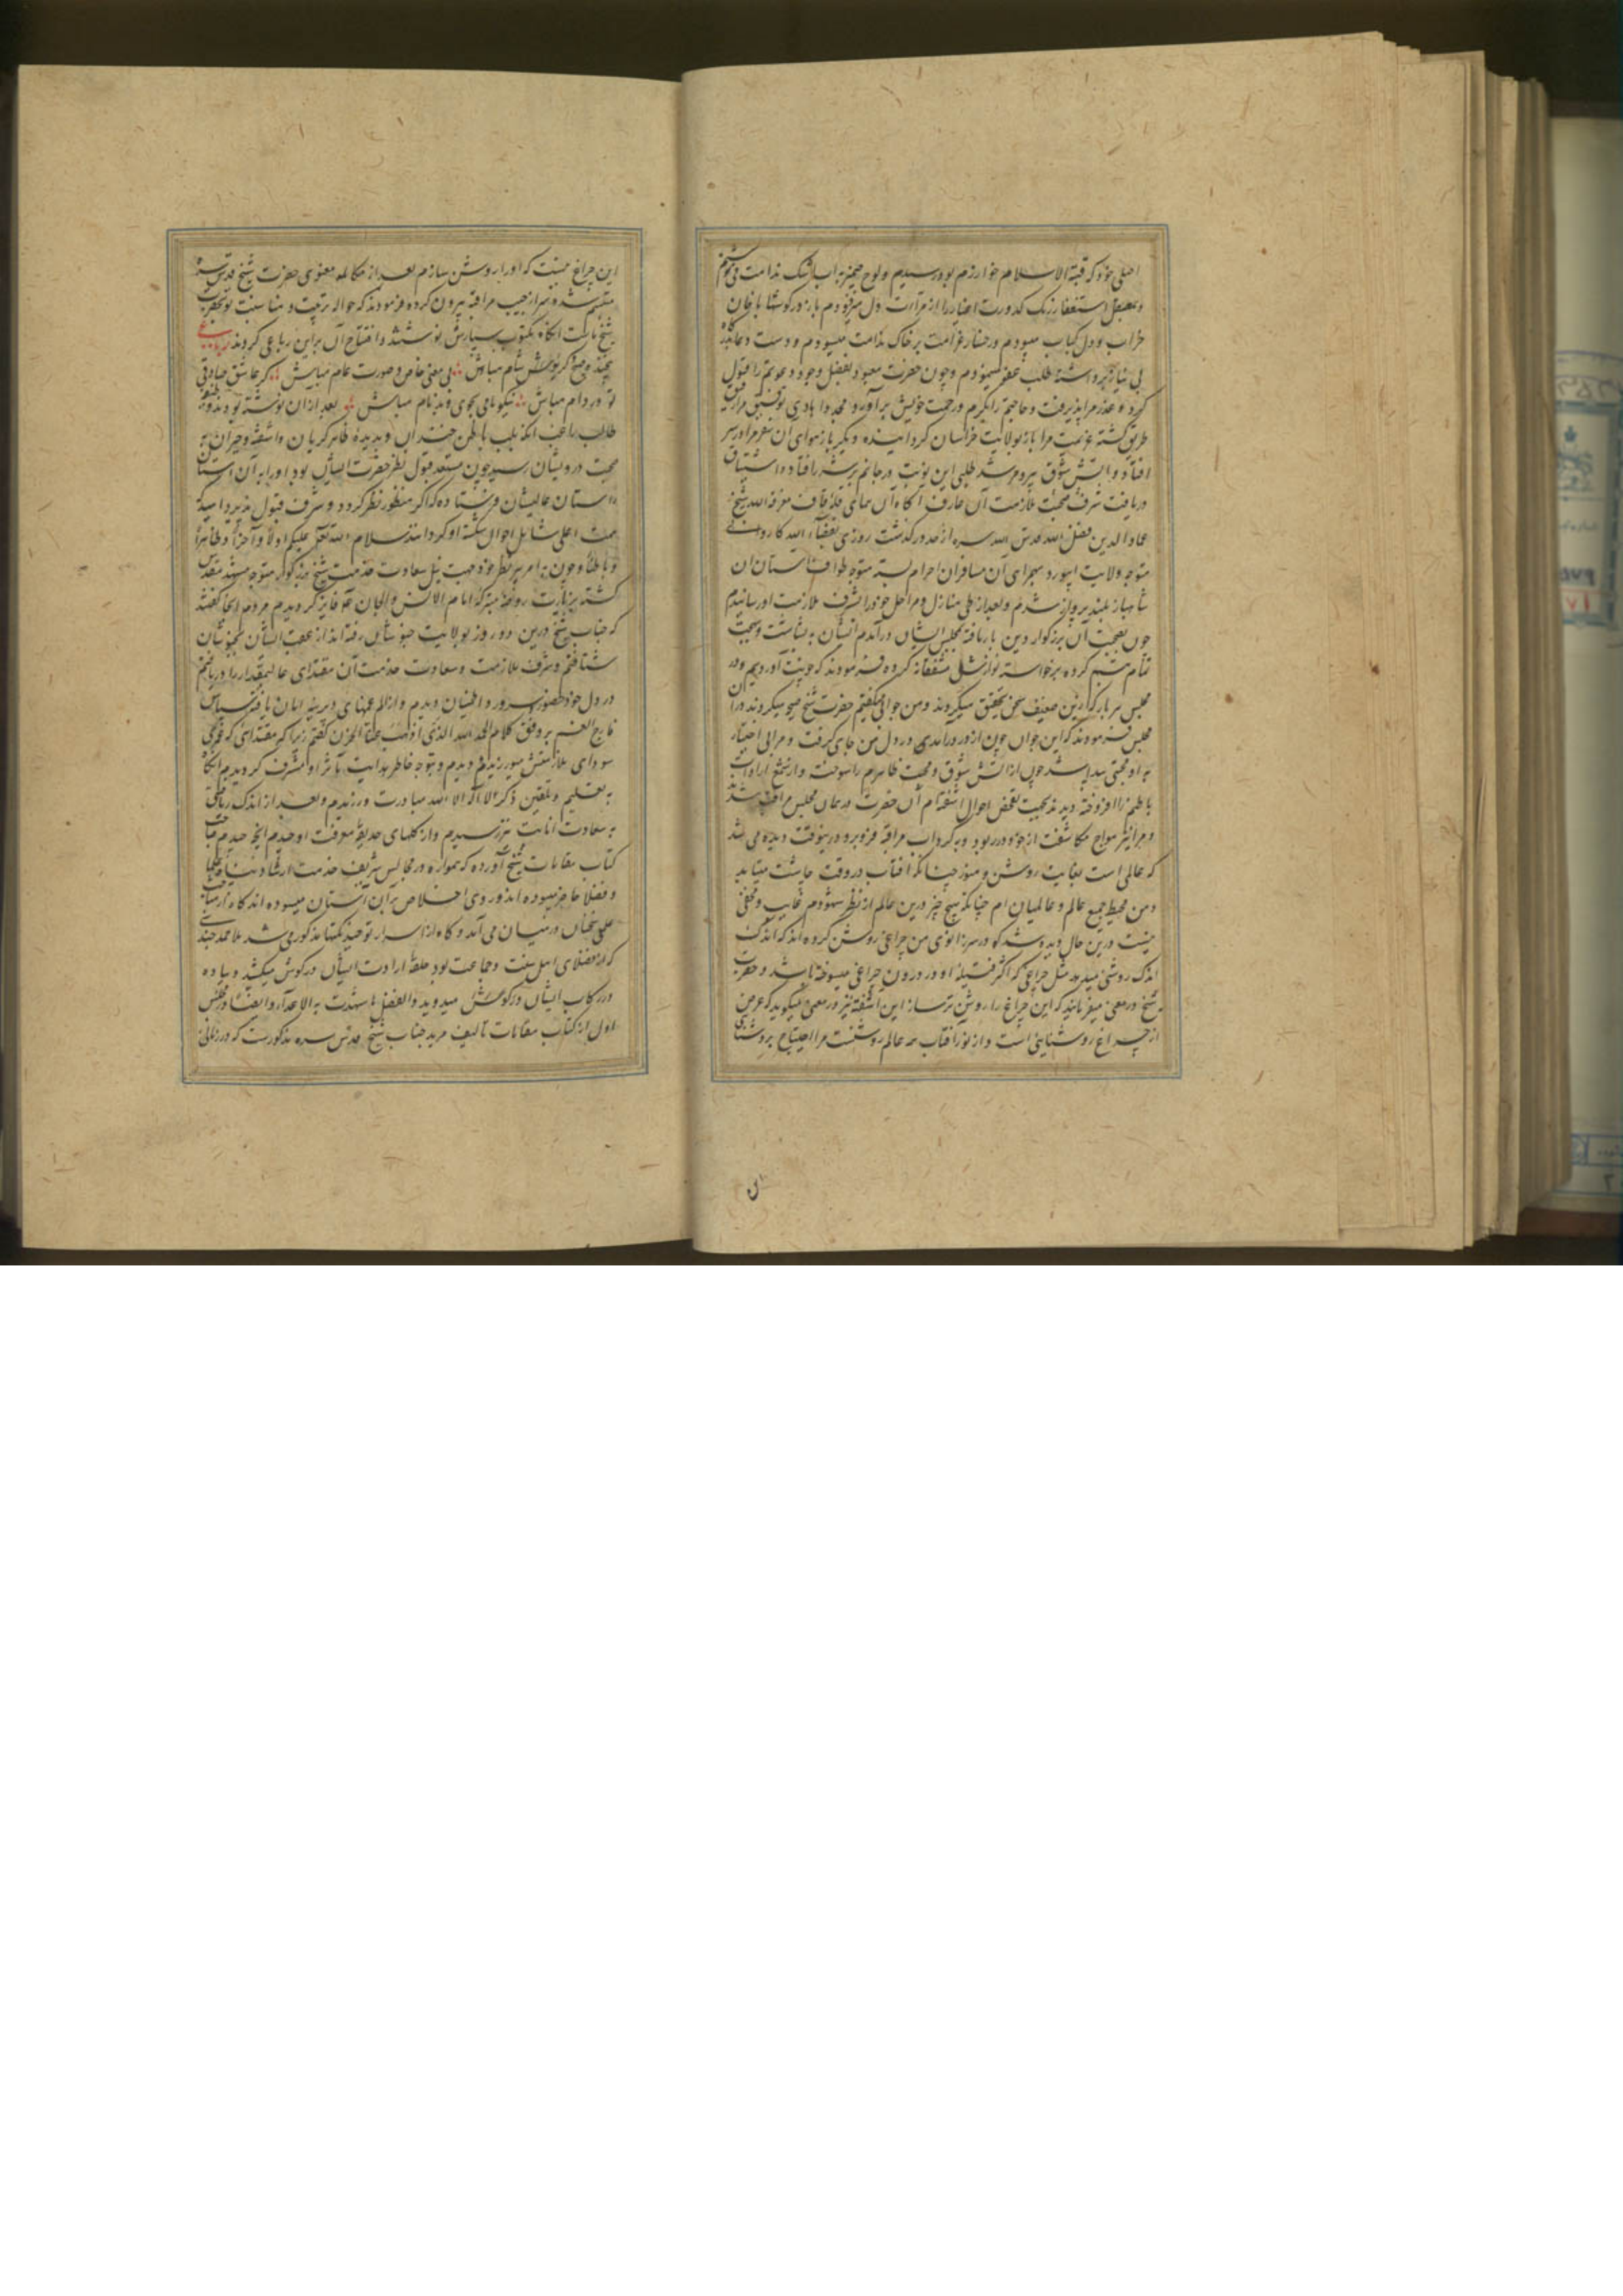 اصلی خود که قبة الاسلام خوارزم بود رسیدیم و لوح ضمیر را به آب اشک ندامت می شستم
و بصیقل استغفار زنک کدورت اغیار را از مرآت دل میزدودم باز در کوشها با جان
خراب و دل کباب میبودم و رخسار غرامت بر خاک ندامت میسودم و دست دعا بدرگاه
بی نیاز برداشته طلب عفو مینمودم و چون حضرت معبود بفضل وجود دعوتم را قبول
کرد و عذر مرا پذیرفت و حاجتم را بکرم و رحمت خویش برآورد و مجددا هادی توفیق مرا رفیق
طریق کشته عزیمت مرا باز بولایت خراسان کردانیده و دیکر باز هوای آن سفر مرا در سر
افتاد و آتش شوق پیر و مرشد طلبی این نوبت در جانم بیشتر افتاد و اشتیاق
دریافت شرف صحبت ملازمت آن عارف آکاه آن همای قله قاف معرفة الله شیخ
عماد الدین فضل الله قدس الله سره از حد در کذشت روزی بقضاء الله کاروانی
متوجه ولایت ابیورد همرای آن مسافران احرام بسته متوجه طواف آستان آن
شاهباز بلند پرواز شدم و بعد از طی منازل و مراحل خود را بشرف ملازمت او رسانیدم
چون بصحبت آن بزرکوار دین بار یافته بمجلس ایشان درآمدم ایشان به بشاشت و بهجت
تمام تبسم کرده برخواسته نوازش مشفقانه کرده فرمودند که خوبست آوردیم و در
مجلس هر بار که ازین ضعیف سخن تحقیق میکردند و من جوابی میکفتم حضرت شیخ صیحه میکردند و در آن
مجلس فرمودند که این جوان چون از در درآمدی در دل من جای کرفت و مرا بی اختیار
به او محبتی پیدا شد چون از آتش شوق و محبت ظاهرم را سوخت و از شمع ارادت
باطنم را افروخته دیدند بجهت تفحص احوال آشفته ام آن حضرت در همان مجلس مراقب شدند
و مرا نیز امواج مکاشفت از خود در ربود و به کرداب مراقبه فرو برد و درینوقت دیده می شد
که عالمی است بغایت روشن و منور چنانکه آفتاب در وقت چاشت میتابد
و من محیط جمیع عالم و عالمیان ام چنانکه هیچ چیز درین عالم از نظر شهودم غایب و مخفی
نیست درین حال دیده شد که در سر زانوی من چراغی روشن کرده اند که اندک
اندک روشنی میدهد مثل چراغی که اکثر فتیله او در درون چراغی میسوخته باشد و حضرت
شیخ در معنی میفرمایند که این چراغ را روشن تر ساز این آشفته نیز در معنی میکوید که غرض
از چراغ روشنایی است و از نور آفتاب همه عالم روشنست مرا احتیاج بروشنایی
این چراغ نیست که او را روشن سازم بعد از مکالمه معنوی حضرت شیخ قدس سره
متبسم شده سر از جیب مراقبه بیرون کرده فرمودند که حواله تربیت و مناسبت تو بحضرت
شیخ ماست آنکاه مکتوب سپارش نوشتند و افتتاح آن براین رباعی کردند رباعی
بی معنی خاص و صورت عام مباش کر عاشق صادقی
تو در دام مباش نیکو نامی بجوی و بدنام مباش بعد از آن نوشته بودند که
طالب راغب آنکه بلب باطن خندان و بدیده ظاهر کریان و آشفته و حیران به
صحبت درویشان رسید چون مستعد قبول نظر حضرت ایشان بود او را به آن آستان
آستان عالیشان فرستاده که اکر منظور نظر کردد و شرف قبول پذیرد امید که
همت اعلی شامل احوال شکسته او کردانند سلام الله تعالی علیکم اولا و آخرا و ظاهرا
و باطنا و چون به امر پیر نظر خود جهت نیل سعادت خدمت شیخ بزرکوار متوجه مشهد مقدس
کشته بزیارت روضه متبرکه امام الانس و الجان فایز کردیدم مردم آنجا کفتند
که جناب شیخ درین دو روز بولایت خبوشان رفته اند از عقب ایشان بخبوشان
شتافتم و شرف ملازمت و سعادت خدمت آن مقتدای عالیمقدار را دریافتم
در دل خود حضور و سرور و اطمینان دیدم و از الم غمهای دیرینه امان یافته سپاس
فارج الغم بر وفق کلام الحمد لله الذی اذهب عنا الحزن کفتم زیرا که مقتدائی که عمری
سودای ملازمتش میورزیدم دیدم و بتوجه خاطر هدایت ماثر او مشرف کردیدم آنکاه
به تعلیم و تلقین ذکر لا اله الا الله مبادرت ورزیدم و بعد از اندک ریاضتی
به سعادت انابت نیز رسیدم و از کلهای حدیقه معرفت او چیدم آنچه چیدم صاحب
کتاب مقامات شیخ آورده که همواره در مجالس شریف خدمت ارشاد پناه علما
و فضلا حاضر میبوده اند و روی اخلاص بر آن آستان میسوده اند کاه از مباحث
علمی سخنان در میان می آمد و کاه از اسرار توحید نکتها مذکور می شد ملا محمد جندی
که از فضلای اهل سنت و جماعت بود حلقه ارادت ایشان در کوش میکشید و پیاده
در رکاب ایشان در کوشش میدوید و الفضل ما شهدت به الاعداء و ایضا در مجلس
اول از کتاب مقامات تالیف مرید جناب شیخ قدس سره مذکورست که در زمانی